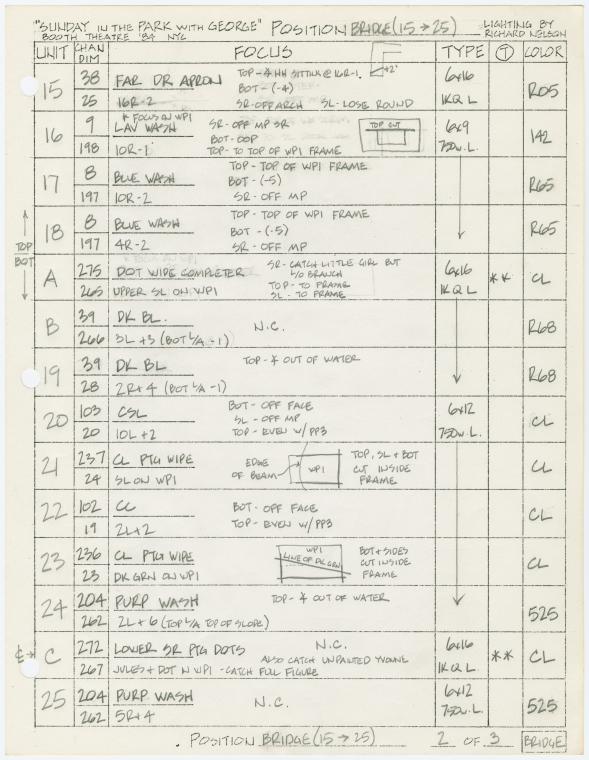 "SUNDAY IN THE PARK WITH GEORGE" POSITION BRIDGE (15 → 25) LIGHTING BY
BOOTH THEATRE '84 NYC RICHARD NELSON
UNIT CHAN DIM FOCUS TYPE T COLOR
15 38 FAR DR APRON TOP - @ 16R-1. +2' 6x16 R05
BOT - (-4)
25 16R-2 SR-OFF ARCH SL-LOSE ROUND 1KQ L
* FOCUS ON WP1
16 9 LAV WASH SR-OFF MP SR TOP CUT 6x9 142
BOT-OOP
198 10R-1 TOP-TO TOP OF WP1 FRAME 750w.L.
17 8 BLUE WASH TOP-TOP OF WP1 FRAME R65
BOT - (-5)
197 10R-2 SR-OFF MP
TOP
18 8 BLUE WASH TOP-TOP OF WP1 FRAME R65
BOT - (-5)
197 4R-2 SR-OFF MP
BOT
A 275 DOT WIDE COMPLETER SR-CATCH LITTLE GIRL BUT 6x16 ** CL
L/O BRANCH
TOP - TO FRAME
265 UPPER SL ON WP1 SL - TO FRAME 1KQ L
B 39 DK BL. N.C. R68
266 3L+3 (BOT L/A -1)
19 39 DK BL TOP - OUT OF WATER R68
28 2R+4 (BOT L/A -1)
20 103 CSL BOT-OFF FACE 6x12 CL
SL - OFF MP
20 10L+2 TOP - EVEN W/PP3 750w.L.
21 237 CL PTG WIPE EDGE OF BEAM WP1 TOP, SL + BOT CL
24 SL ON WP1 CUT INSIDE FRAME
22 102 CC BOT-OFF FACE CL
19 2L+2 TOP-EVEN W/PP3
23 236 CL PTG WIPE WP1 LINE OF DK GRN BOT+SIDES CL
23 DK GRN ON WP1 CUT INSIDE FRAME
24 204 PURP WASH TOP - OUT OF WATER 525
262 2L+6 (TOP L/A TOP OF SLOPE)
C 272 LOWER SR PTG DOTS N.C. 6x16 ** CL
ALSO CATCH UNPAINTED YVONNE
267 JULES+DOT IN WP1 - CATCH FULL FIGURE 1KQ L
25 204 PURP WASH N.C. 6x12 525
262 5R+4 750w.L.
POSITION BRIDGE (15 → 25) 2 OF 3 BRIDGE